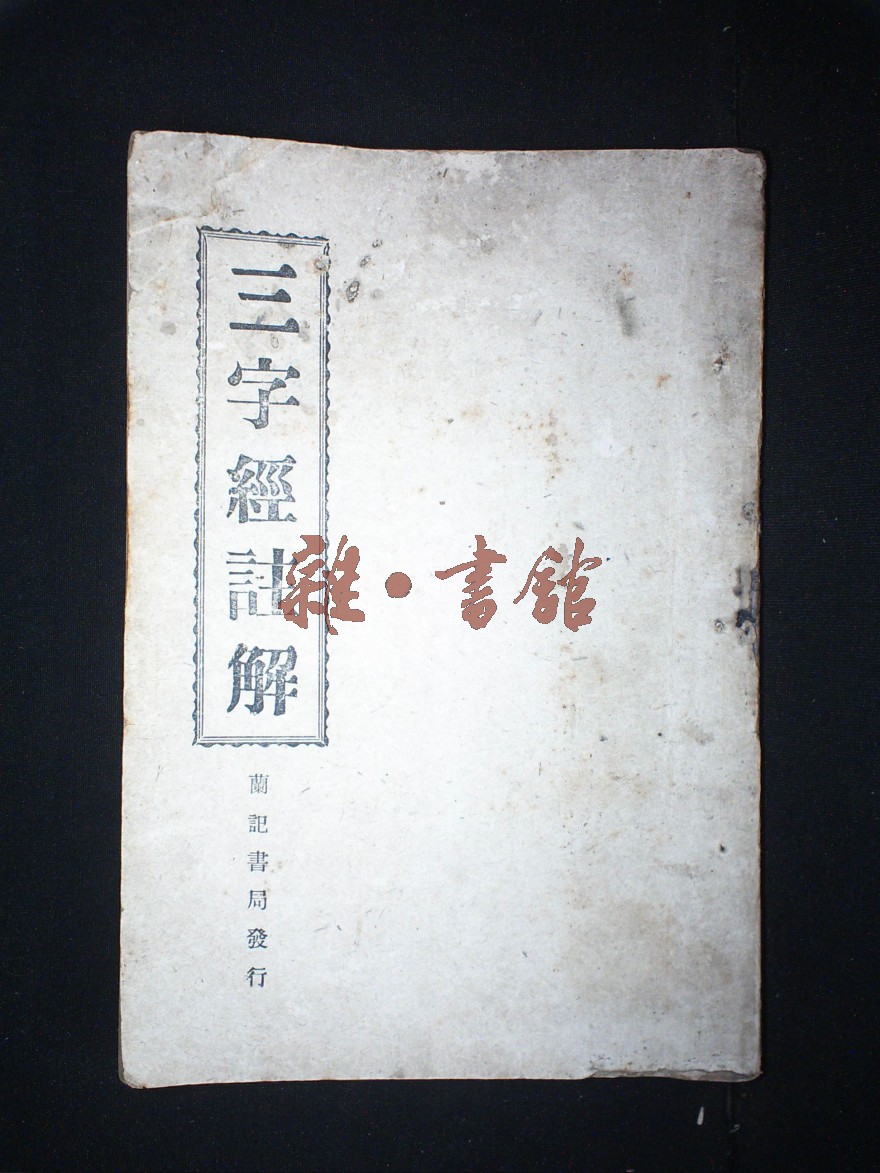 三字經註解
蘭記書局發行
雜·書館